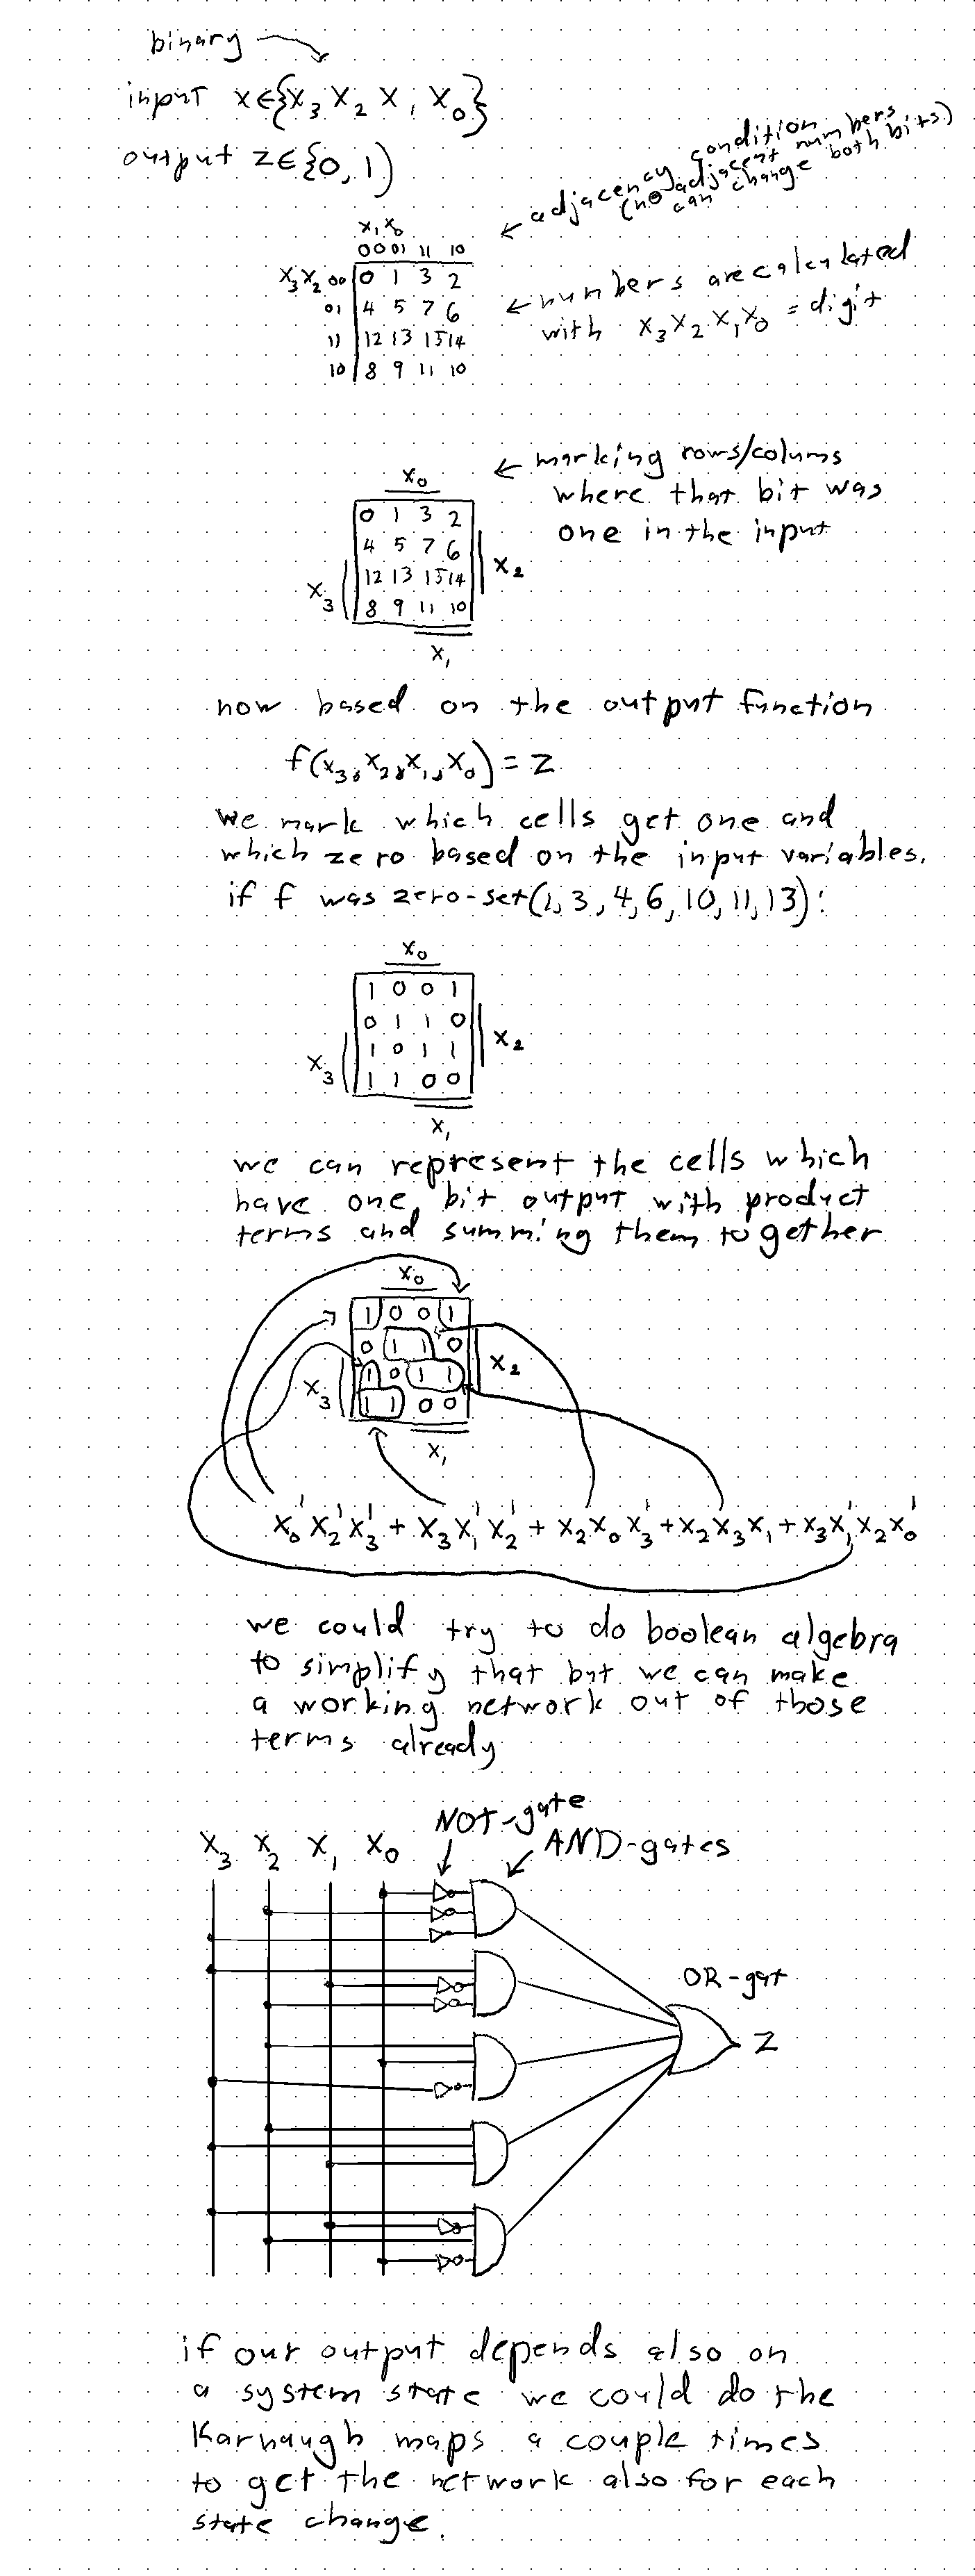 binary
input x∈{x₃ x₂ x₁ x₀}
output z∈{0,1)
adjacency condition
(no adjacent numbers
can change both bits)
x₁x₀
00 01 11 10
x₃x₂ 00 0 1 3 2
01 4 5 7 6
11 12 13 15 14
10 8 9 11 10
numbers are calculated
with x₃x₂x₁x₀ = digit
marking rows/colums
where that bit was
one in the input
x₀
0 1 3 2
4 5 7 6
x₂
12 13 15 14
x₃
8 9 11 10
x₁
now based on the output function
f(x₃,x₂,x₁,x₀) = z
we mark which cells get one and
which zero based on the input variables.
if f was zero-set(1,3,4,6,10,11,13):
x₀
1 0 0 1
0 1 1 0
x₂
1 0 1 1
x₃
1 1 0 0
x₁
we can represent the cells which
have one bit output with product
terms and summing them together
x₀
1 0 0 1
0 1 1 0
x₂
1 0 1 1
x₃
1 1 0 0
x₁
x₀'x₂'x₃' + x₃x₁'x₂' + x₂x₀x₃' + x₂x₃x₁ + x₃x₁'x₂x₀'
we could try to do boolean algebra
to simplify that but we can make
a working network out of those
terms already
NOT-gate
x₃ x₂ x₁ x₀
AND-gates
OR-gat
z
if our output depends also on
a system state we could do the
Karnaugh maps a couple times
to get the network also for each
state change.